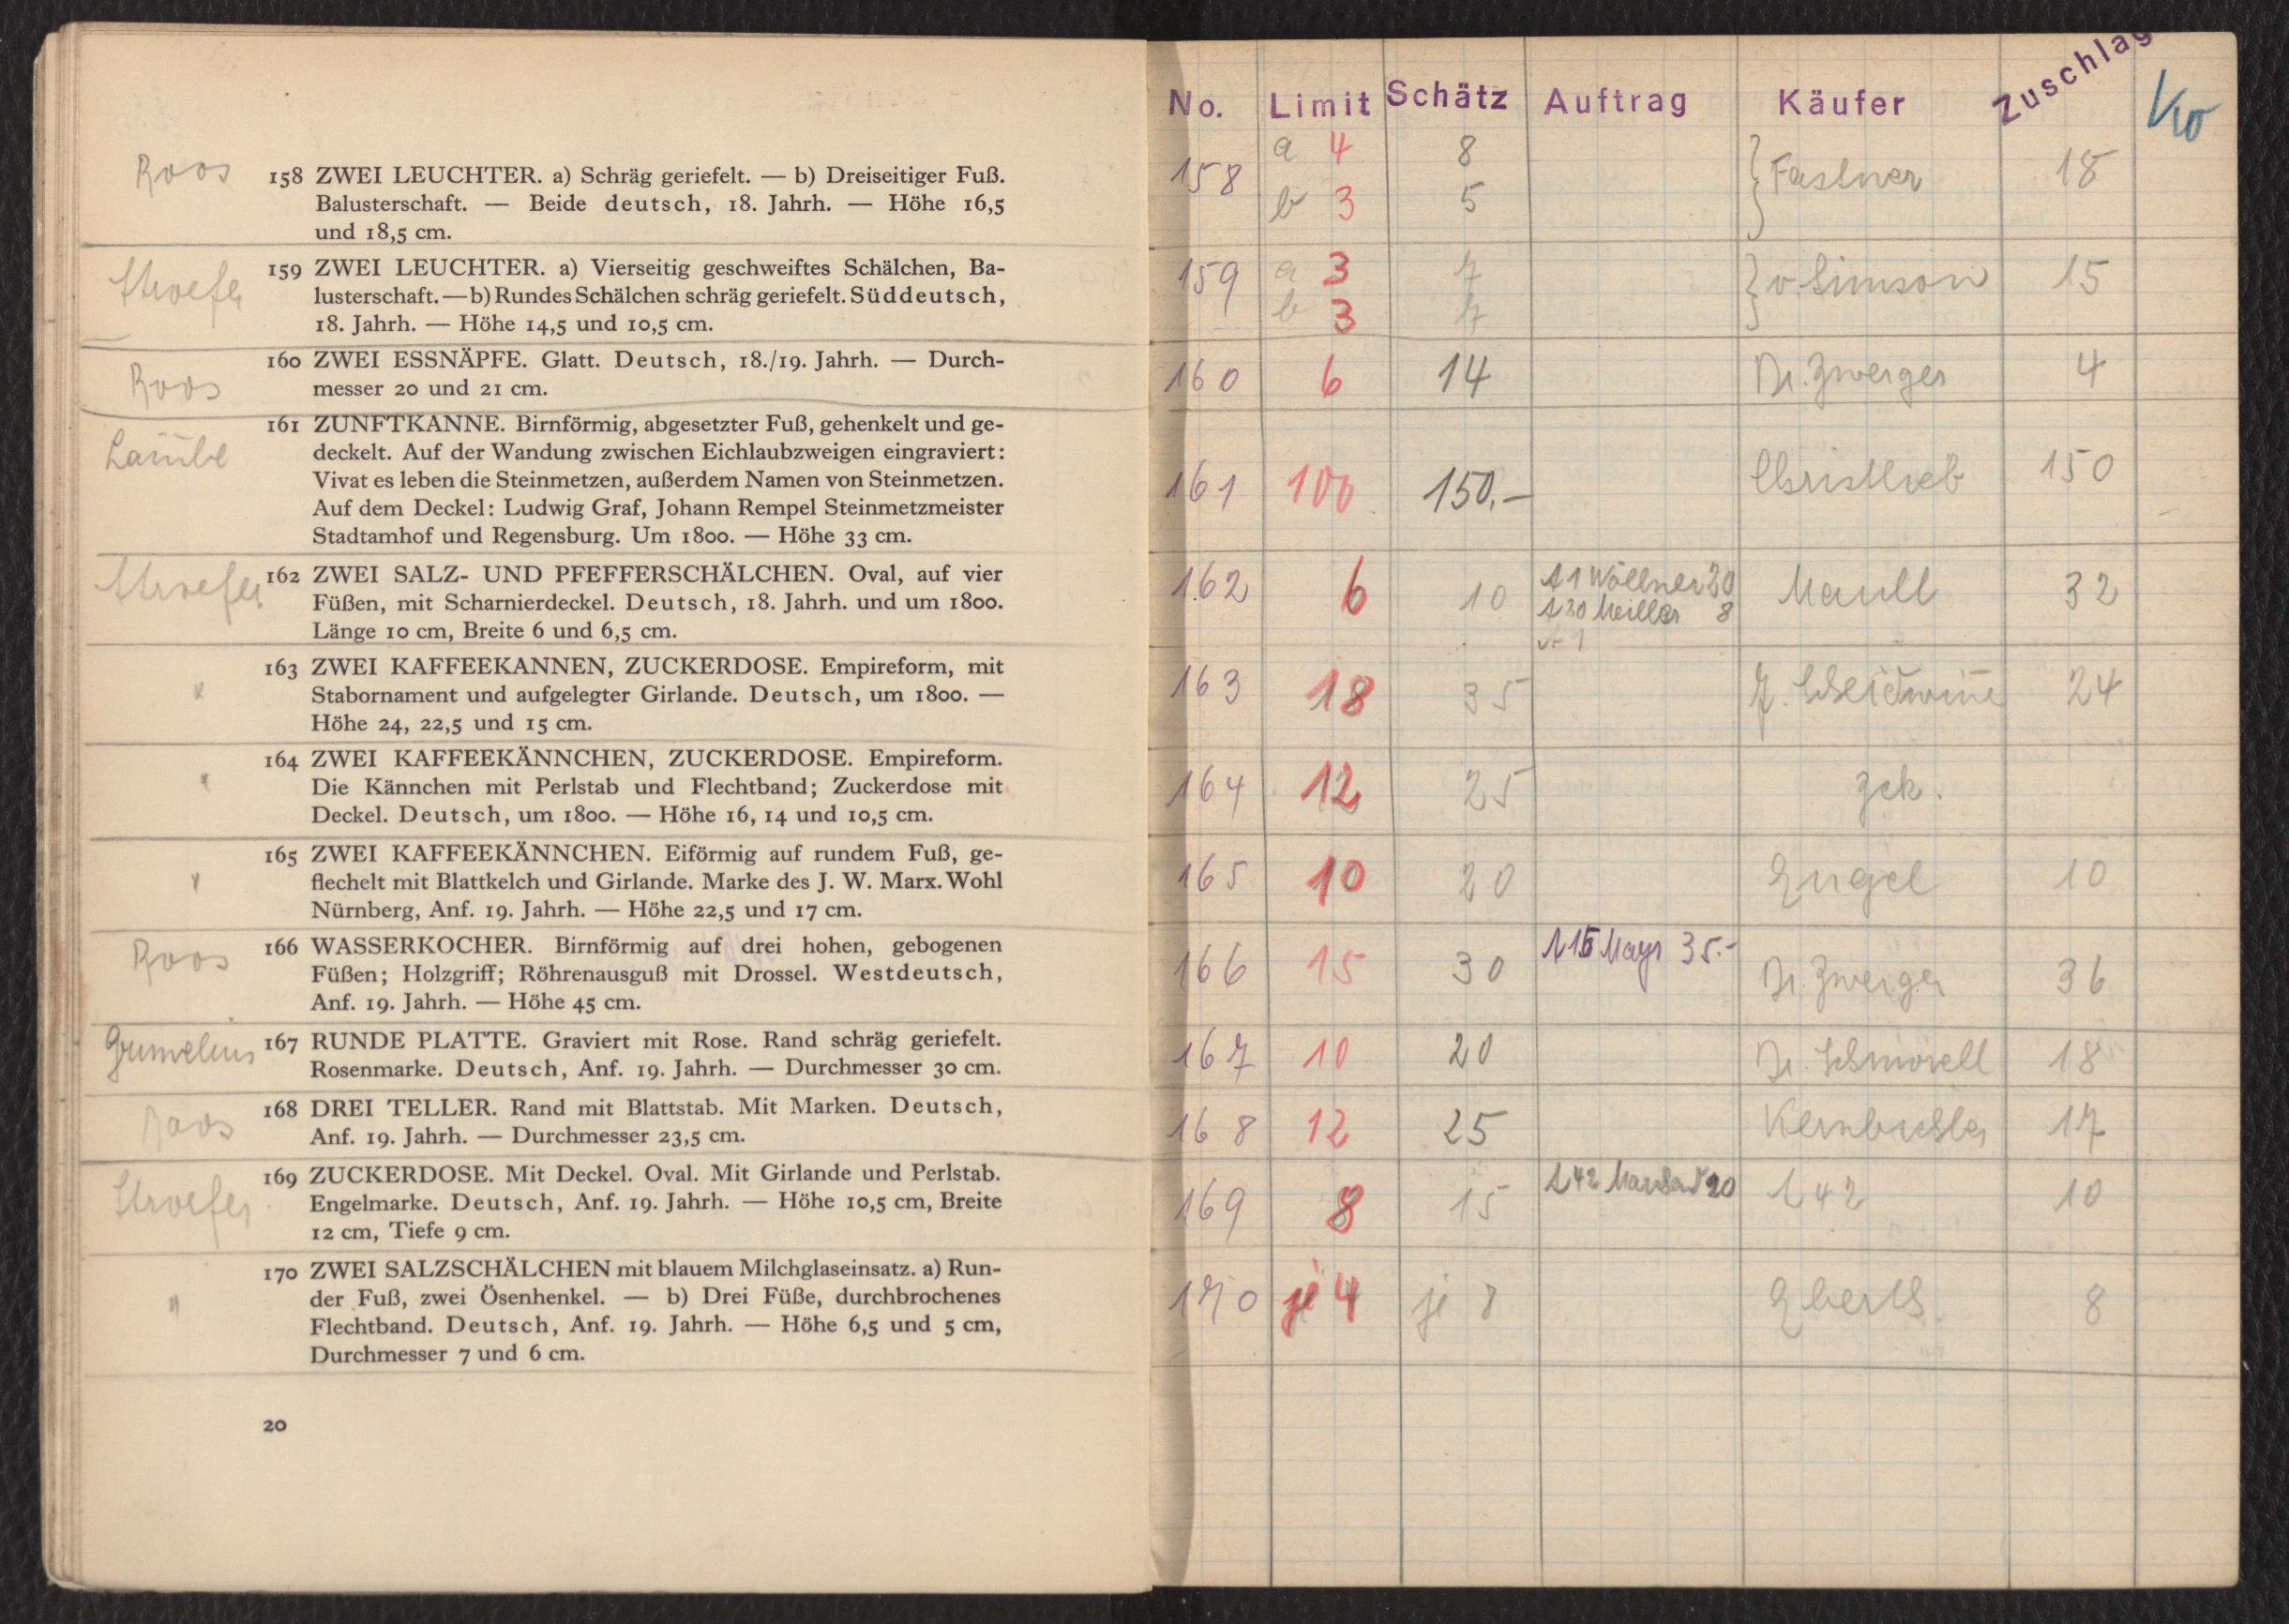 Roos
158 ZWEI LEUCHTER. a) Schräg geriefelt. — b) Dreiseitiger Fuß.
Balusterschaft. — Beide deutsch, 18. Jahrh. — Höhe 16,5
und 18,5 cm.
Stroefer
159 ZWEI LEUCHTER. a) Vierseitig geschweiftes Schälchen, Ba-
lusterschaft. — b) Rundes Schälchen schräg geriefelt. Süddeutsch,
18. Jahrh. — Höhe 14,5 und 10,5 cm.
Roos
160 ZWEI ESSNÄPFE. Glatt. Deutsch, 18./19. Jahrh. — Durch-
messer 20 und 21 cm.
161 ZUNFTKANNE. Birnförmig, abgesetzter Fuß, gehenkelt und ge-
deckelt. Auf der Wandung zwischen Eichlaubzweigen eingraviert:
Vivat es leben die Steinmetzen, außerdem Namen von Steinmetzen.
Auf dem Deckel: Ludwig Graf, Johann Rempel Steinmetzmeister
Stadtamhof und Regensburg. Um 1800. — Höhe 33 cm.
Stroefer
162 ZWEI SALZ- UND PFEFFERSCHÄLCHEN. Oval, auf vier
Füßen, mit Scharnierdeckel. Deutsch, 18. Jahrh. und um 1800.
Länge 10 cm, Breite 6 und 6,5 cm.
163 ZWEI KAFFEEKANNEN, ZUCKERDOSE. Empireform, mit
Stabornament und aufgelegter Girlande. Deutsch, um 1800. —
Höhe 24, 22,5 und 15 cm.
164 ZWEI KAFFEEKÄNNCHEN, ZUCKERDOSE. Empireform.
Die Kännchen mit Perlstab und Flechtband; Zuckerdose mit
Deckel. Deutsch, um 1800. — Höhe 16, 14 und 10,5 cm.
165 ZWEI KAFFEEKÄNNCHEN. Eiförmig auf rundem Fuß, ge-
flechelt mit Blattkelch und Girlande. Marke des J. W. Marx. Wohl
Nürnberg, Anf. 19. Jahrh. — Höhe 22,5 und 17 cm.
Roos
166 WASSERKOCHER. Birnförmig auf drei hohen, gebogenen
Füßen; Holzgriff; Röhrenausguß mit Drossel. Westdeutsch,
Anf. 19. Jahrh. — Höhe 45 cm.
Gumelius
167 RUNDE PLATTE. Graviert mit Rose. Rand schräg geriefelt.
Rosenmarke. Deutsch, Anf. 19. Jahrh. — Durchmesser 30 cm.
Roos
168 DREI TELLER. Rand mit Blattstab. Mit Marken. Deutsch,
Anf. 19. Jahrh. — Durchmesser 23,5 cm.
Stroefer
169 ZUCKERDOSE. Mit Deckel. Oval. Mit Girlande und Perlstab.
Engelmarke. Deutsch, Anf. 19. Jahrh. — Höhe 10,5 cm, Breite
12 cm, Tiefe 9 cm.
"
170 ZWEI SALZSCHÄLCHEN mit blauem Milchglaseinsatz. a) Run-
der Fuß, zwei Ösenhenkel. — b) Drei Füße, durchbrochenes
Flechtband. Deutsch, Anf. 19. Jahrh. — Höhe 6,5 und 5 cm,
Durchmesser 7 und 6 cm.
20
No. Limit Schätz Auftrag Käufer Zuschlag Ko
158 a 4 8 Fastner 18
b 3 5
159 a 3 7 v. Simson 15
b 3 7
160 6 14 Dr. Zwerger 4
161 100 150.- Christlieb 150
162 6 10 A1 Wöllner 20 Maull 32
A20 Meiller 8
163 18 35 24
164 12 25 zck.
165 10 20 Engel 10
166 15 30 A15 Mayr 35.- Dr. Zwerger 36
167 10 20 Dr. Schmorell 18
168 12 25 Kernbichler 17
169 8 15 A42 20 A42 10
170 je 4 je 8 Eberth. 8